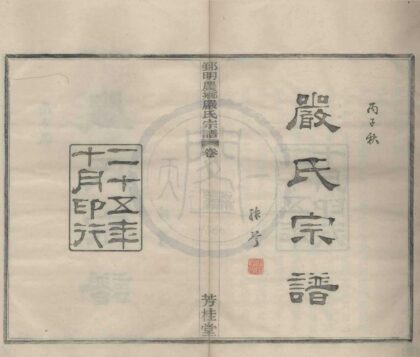 丙子秋
嚴氏宗譜
鄞明農鄉嚴氏宗譜 卷
芳桂堂
二十五年
十月印行